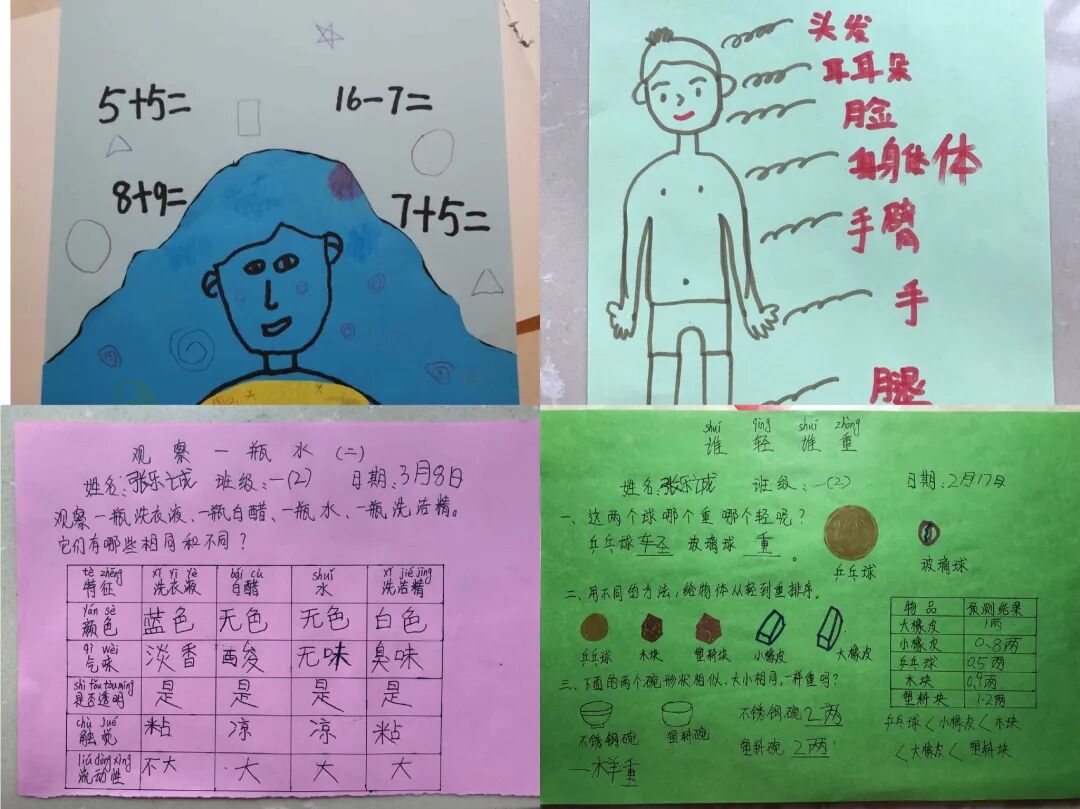 5+5=
16-7=
8+9=
7+5=
头发
耳耳朵
脸
身体
手臂
手
腿
观察一瓶水(二)
姓名:张乐诚 班级:一(2) 日期:3月8日
观察一瓶洗衣液、一瓶白醋、一瓶水、一瓶洗洁精。
它们有哪些相同和不同?
tè zhēng xǐ yī yè bái cù shuǐ xǐ jié jīng
特征 洗衣液 白醋 水 洗洁精
yán sè
颜色 蓝色 无色 无色 白色
qì wèi
气味 淡香 酸 无味 臭味
shì fǒu tòu míng
是否透明 是 是 是 是
chù jué
触觉 粘 凉 凉 粘
liú dòng xìng
流动性 不大 大 大 大
shuí qīng shuí zhòng
谁轻谁重
姓名:张乐诚 班级:一(2) 日期:2月17日
一、这两个球哪个重哪个轻呢?
乒乓球 轻 玻璃球 重。
乒乓球 玻璃球
二、用不同的方法,给物体从轻到重排序。
乒乓球 木块 塑料块 小橡皮 大橡皮
物品 预测结果
大橡皮 1两
小橡皮 0.8两
乒乓球 0.5两
木块 0.9两
塑料块 1.2两
乒乓球<小橡皮<木块
<大橡皮<塑料块
三、下面的两个碗形状相似、大小相同,一样重吗?
不锈钢碗 2两
塑料碗 2两
不锈钢碗 塑料碗
一样重